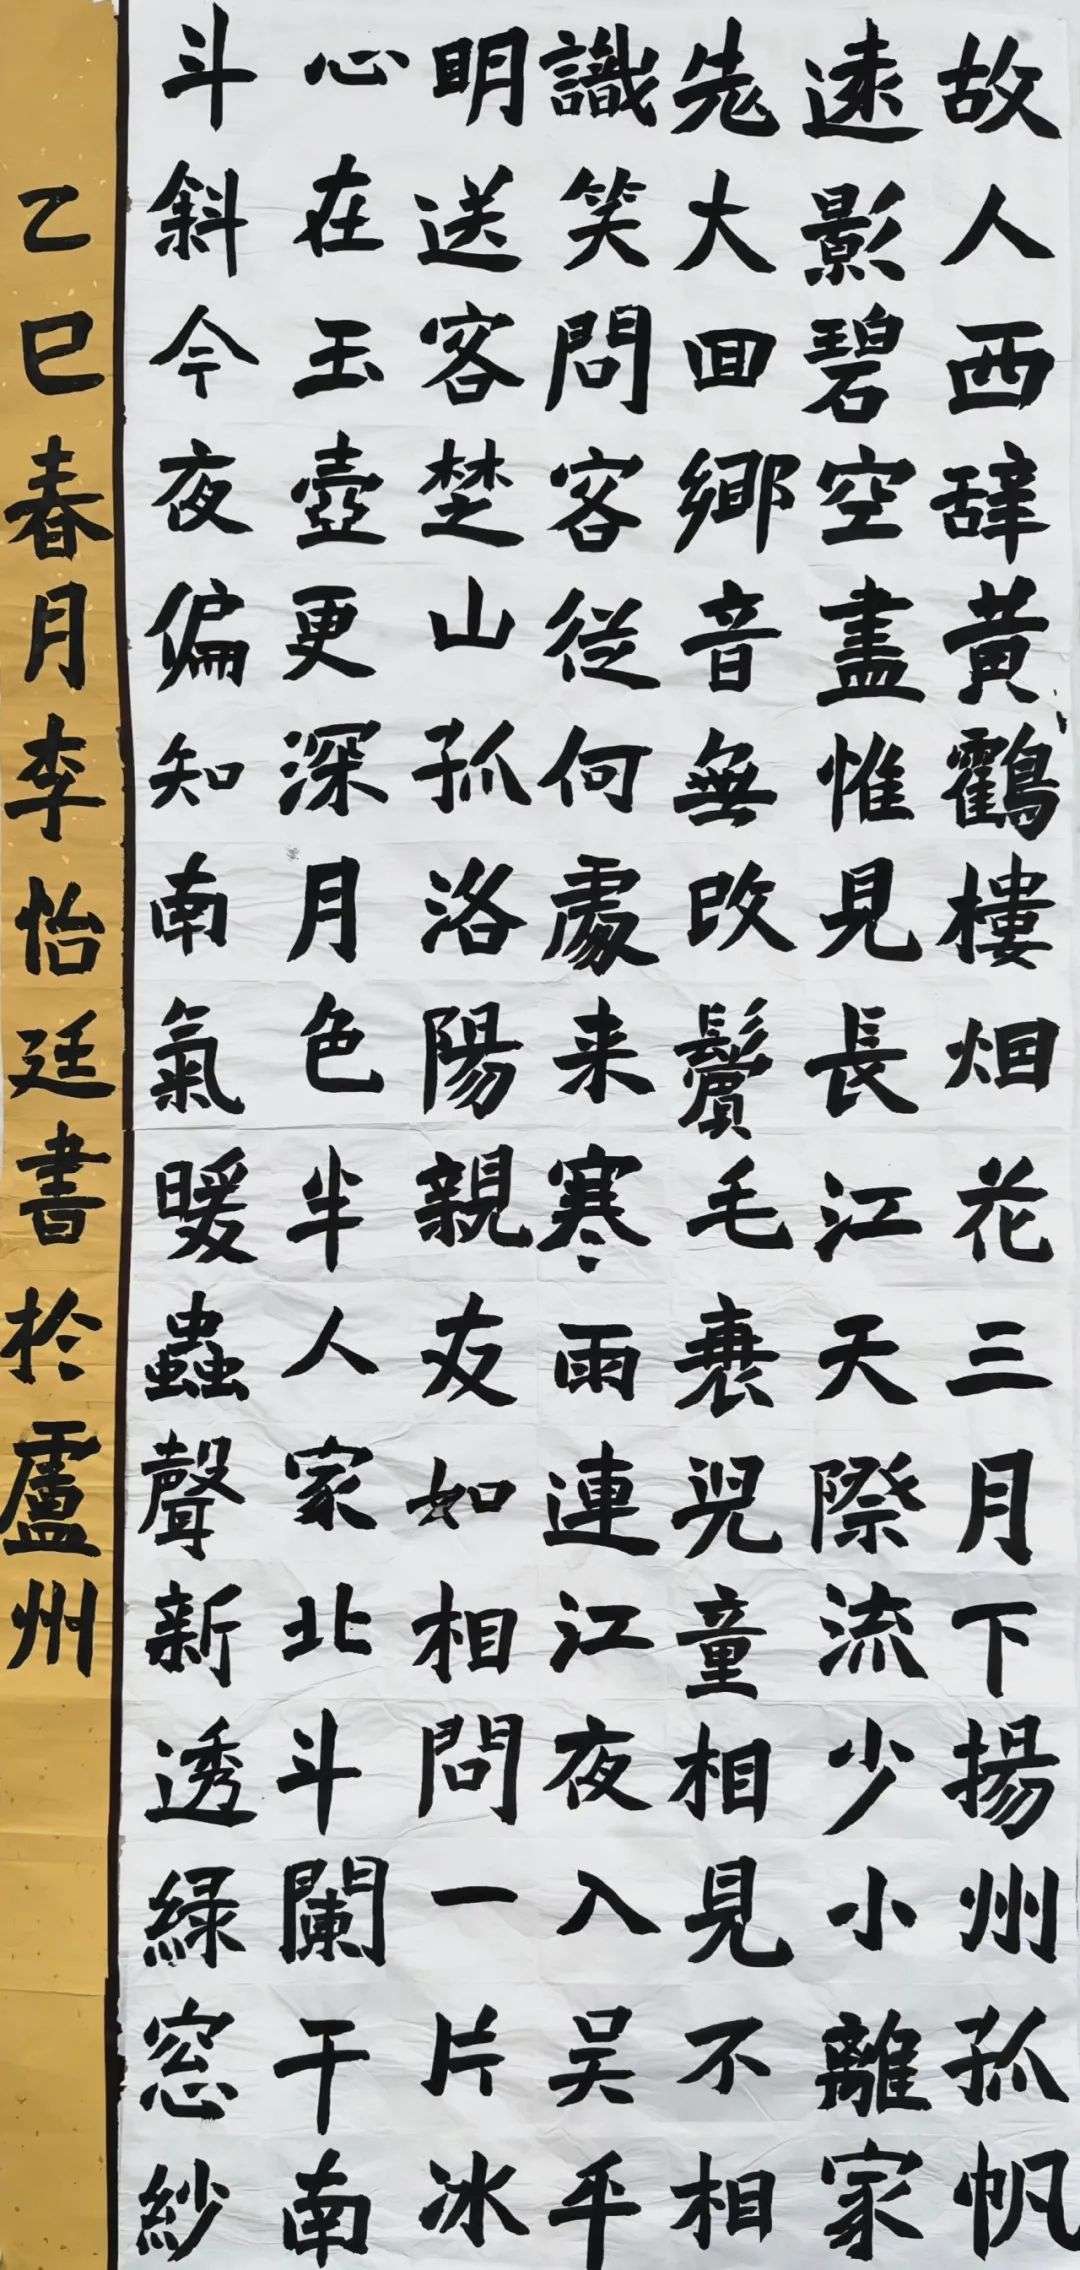 故人西辞黃鶴樓烟花三月下揚州孤帆
遠影碧空盡惟見長江天際流少小離家
老大回鄉音無改鬢毛衰兒童相見不相
識笑問客從何處来寒雨連江夜入吴平
明送客楚山孤洛陽親友如相問一片冰
心在玉壺更深月色半人家北斗闌干南
斗斜今夜偏知南氣暖蟲聲新透緑窓紗
乙巳春月李怡廷書於盧州